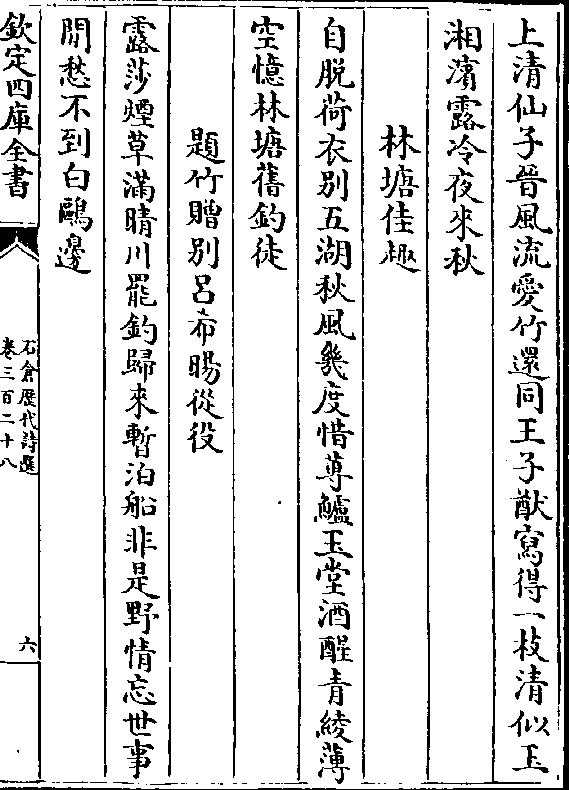 上清仙子晉風流愛竹還同王子猷寫得一枝清似玉
湘濱露冷夜來秋
林塘佳趣
自脱荷衣别五湖秋風幾度惜蓴鱸玉堂酒醒青綾薄
空憶林塘舊釣徒
題竹贈别吕希暘從役
露莎煙草滿晴川罷釣歸來暫泊船非是野情忘世事
閒愁不到白鷗邊
欽定四庫全書
石倉歴代詩選
卷三百二十八
六